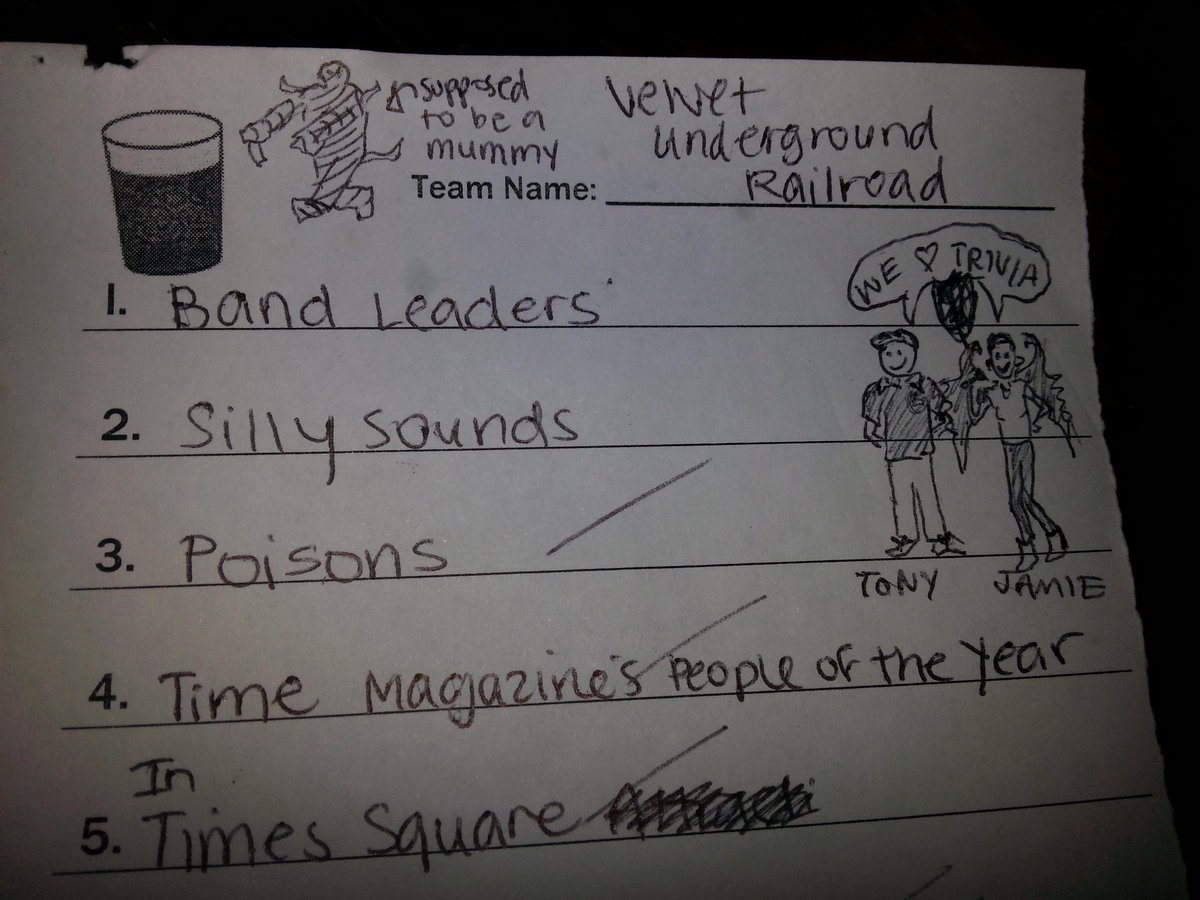 supposed
to be a
mummy
Velvet
Underground
Railroad
Team Name:
WE ♡ TRIVIA
1. Band Leaders
2. Silly Sounds
3. Poisons
TONY JAMIE
4. Time Magazine's People of the Year
In
5. Times Square